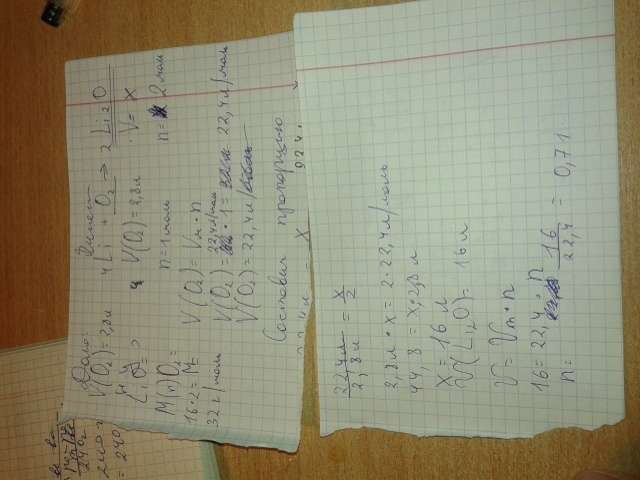 Дано:
V(O₂) = 2,8 л
Li₂O = ?
M(n)O₂ =
16·2 =
32 г/моль
4Li + O₂ → 2Li₂O
V(O₂) = 2,8 л V = X
n = 1 моль n = 2 моль
V(O₂) = Vм · n
V(O₂) = 22,4 л/моль · 1 = 22,4 л/моль
V(O₂) = 22,4 л/
Составим пропорцию
22,4л/2,8л = X/2
2,8л · X = 2·22,4 л/моль
44,8 = X·2,8 л
X = 16 л
V(Li₂O) = 16 л
V = Vm·n
16 = 22,4 · n
n = 16/22,4 = 0,71